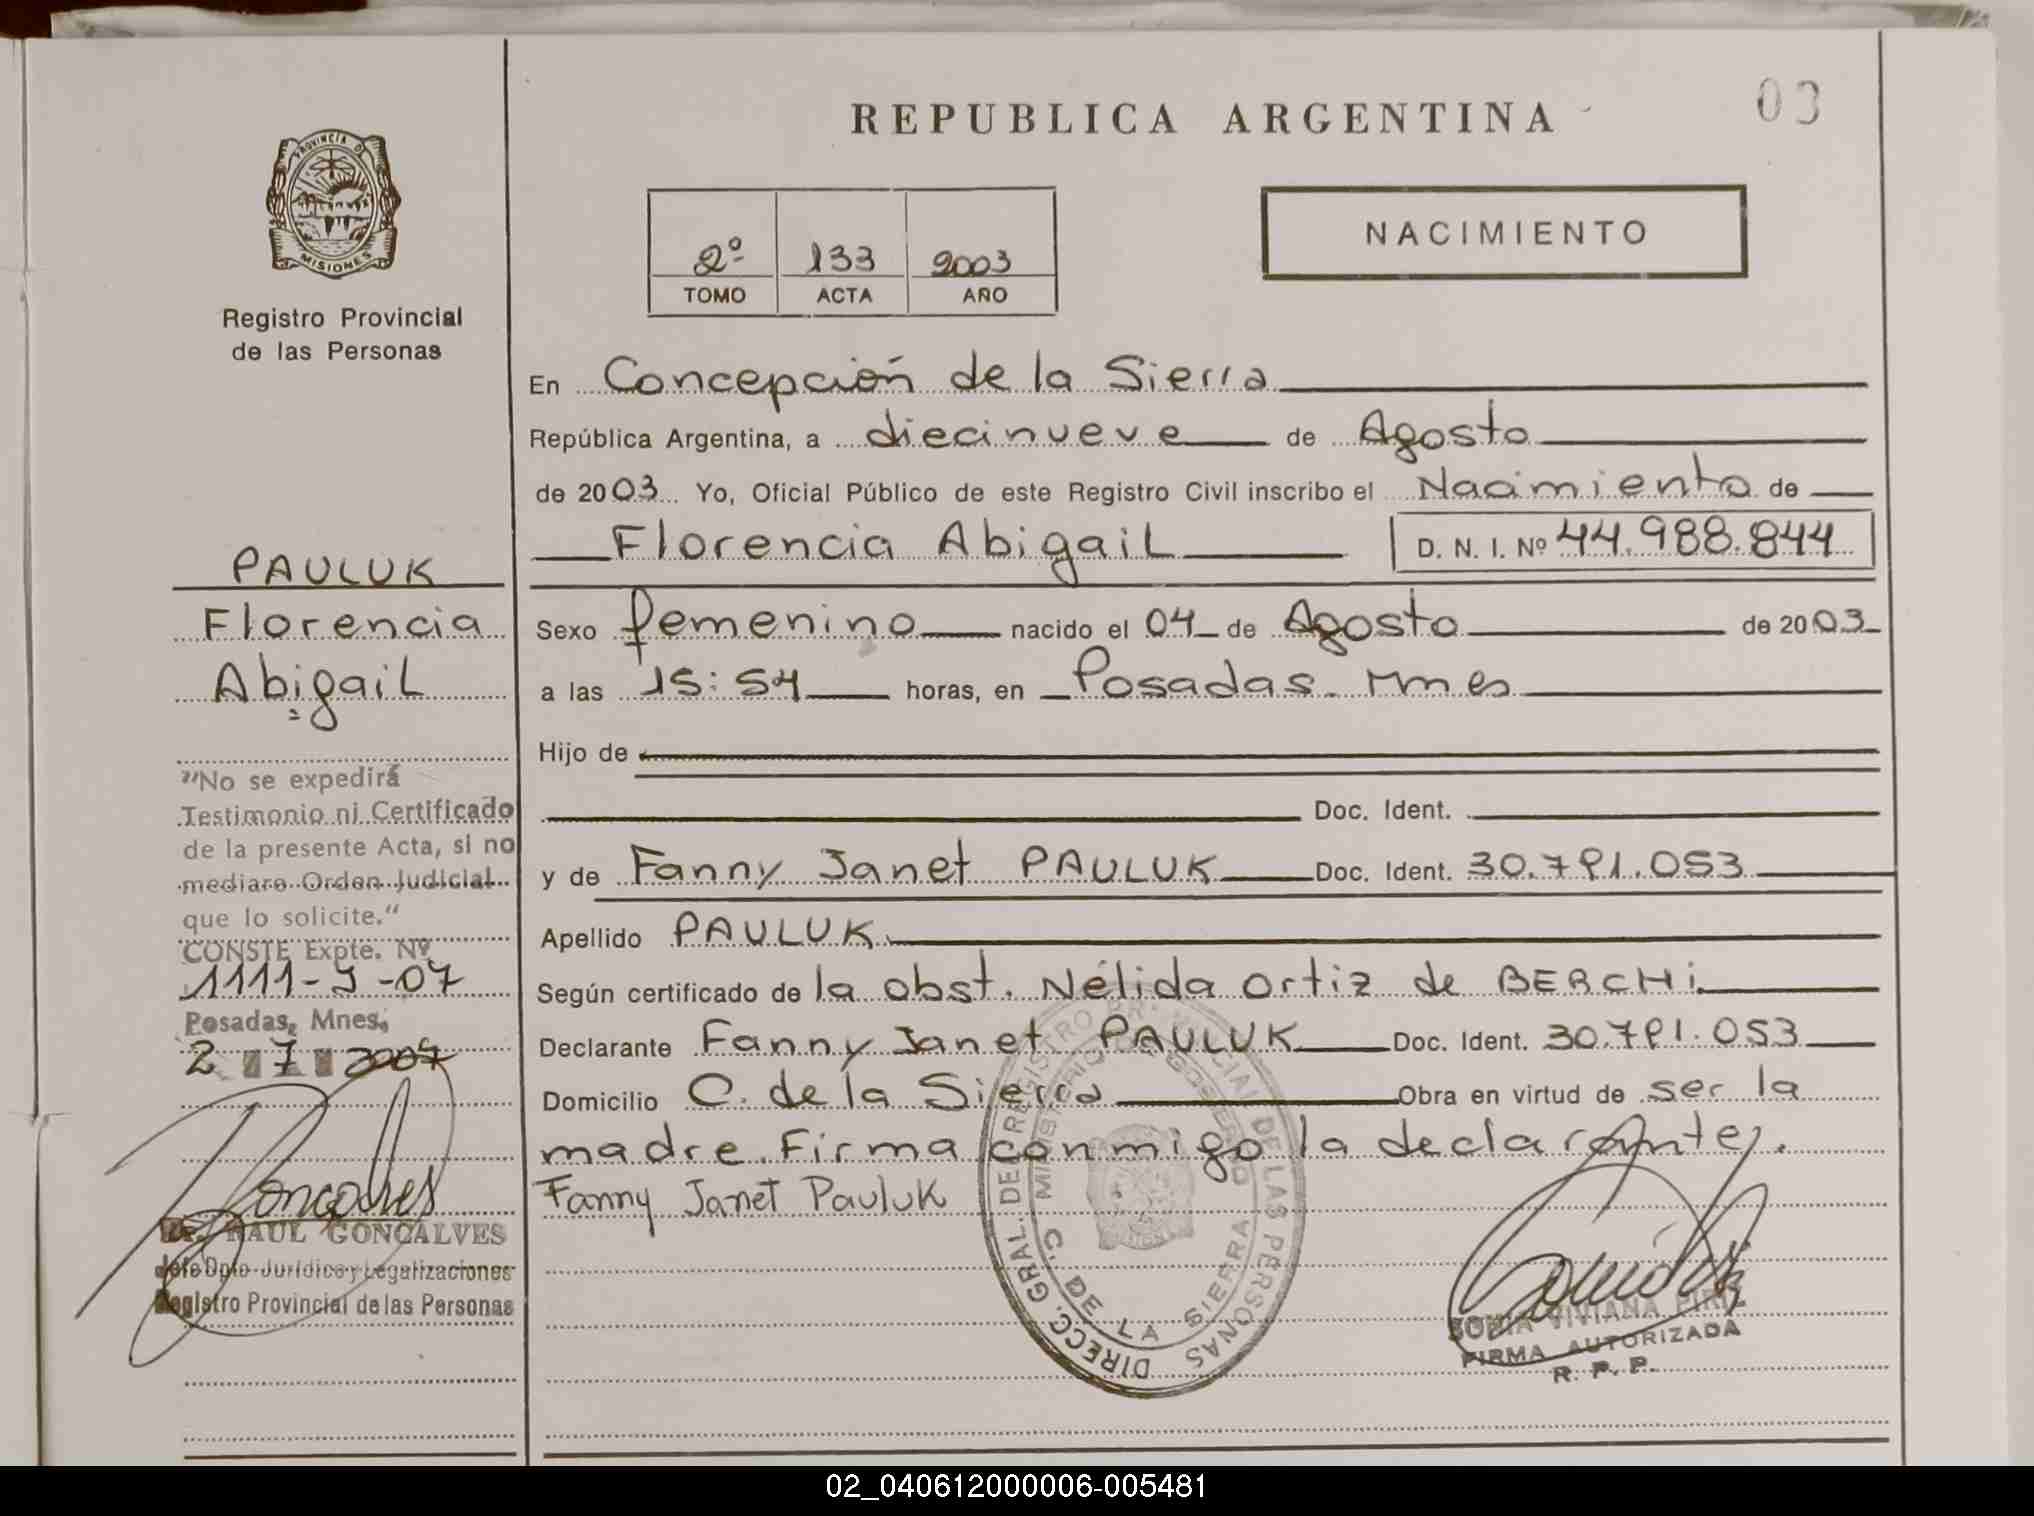 REPUBLICA ARGENTINA
03
PROVINCIA DE
MISIONES
Registro Provincial
de las Personas
2º 133 2003
TOMO ACTA AÑO
NACIMIENTO
En Concepción de la Sierra
República Argentina, a diecinueve de Agosto
de 2003 Yo, Oficial Público de este Registro Civil inscribo el Nacimiento de
Florencia Abigail D. N. I. Nº 44.988.844
Sexo femenino nacido el 04 de Agosto de 2003
a las 15:54 horas, en Posadas. Mnes
Hijo de
Doc. Ident.
y de Fanny Janet PAULUK Doc. Ident. 30.791.053
Apellido PAULUK
Según certificado de la obst. Nélida Ortiz de BERCHi
Declarante Fanny Janet PAULUK Doc. Ident. 30.791.053
Domicilio C. de la Sierra Obra en virtud de ser la
madre. Firma conmigo la declarante.
Fanny Janet Pauluk
PAULUK
Florencia
Abigail
"No se expedirá
Testimonio ni Certificado
de la presente Acta, si no
mediare Orden Judicial
que lo solicite."
CONSTE Expte. Nº
1111-J-07
Posadas, Mnes,
2 7 2007
Dr. RAUL GONCALVES
Jefe Dpto Jurídico y Legalizaciones
Registro Provincial de las Personas
DIRECC. GRAL. DEL REGISTRO PROVINCIAL DE LAS PERSONAS
C. DE LA SIERRA
SONIA VIVIANA PIRIZ
FIRMA AUTORIZADA
R. P. P.
02_040612000006-005481